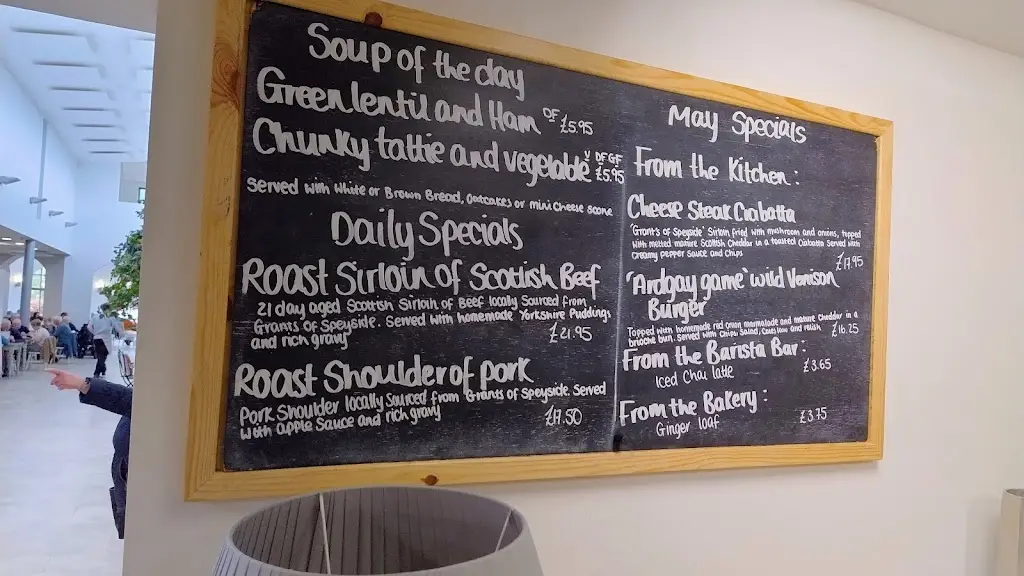 Soup of the day
Green lentil and Ham DF £5.95
Chunky tattie and vegetable V DF GF £5.95
Served with White or Brown Bread, oatcakes or mini Cheese Scone
Daily Specials
Roast Sirloin of Scottish Beef
21 day aged Scottish Sirloin of Beef locally Sourced from
Grants of Speyside. Served with homemade Yorkshire Puddings
and rich gravy £21.95
Roast Shoulder of pork
Pork Shoulder locally sourced from Grants of Speyside. Served
with apple Sauce and rich gravy £17.50
May Specials
From the Kitchen:
Cheese Steak Ciabatta
'Grants of Speyside' Sirloin fried with mushroom and onions, topped
with melted mature Scottish Cheddar in a toasted Ciabatta Served with
creamy pepper sauce and Chips £17.95
'Ardgay game' wild Venison
Burger
Topped with homemade red onion marmalade and mature Cheddar in a
brioche bun. Served with Chips, Salad, Coleslaw and relish £16.25
From the Barista Bar:
Iced Chai latte £3.65
From the Bakery:
Ginger loaf £3.75